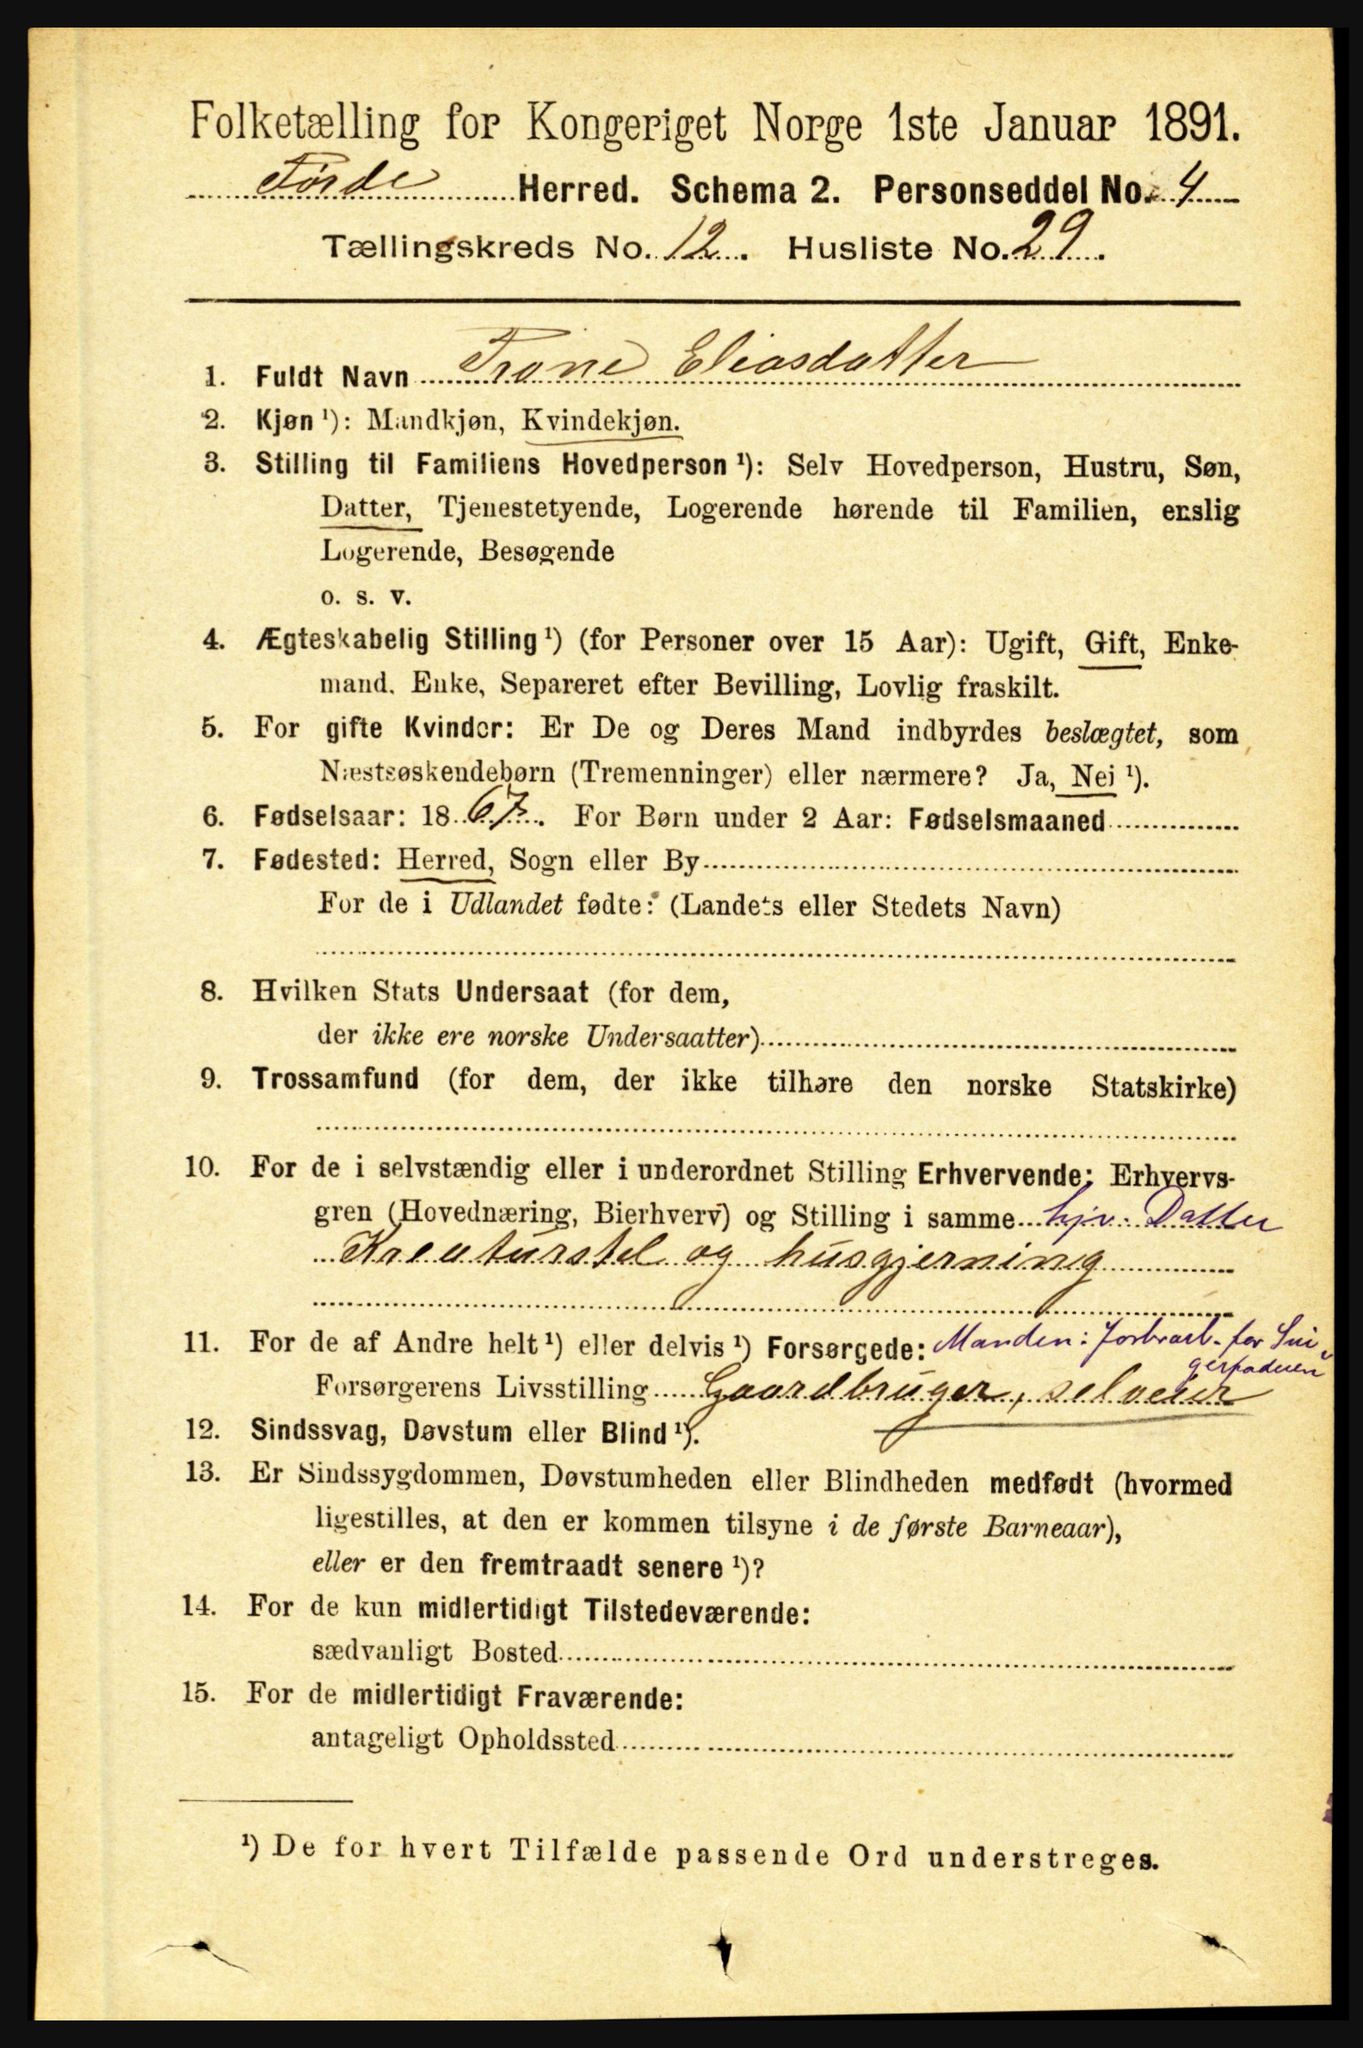 Folketælling for Kongeriget Norge 1ste Januar 1891.
Førde Herred. Schema 2. Personseddel No. 4
Tællingskreds No. 12. Husliste No. 29.
1. Fuldt Navn Trane Eliasdatter
2. Kjøn ¹): Mandkjøn, Kvindekjøn.
3. Stilling til Familiens Hovedperson ¹): Selv Hovedperson, Hustru, Søn,
Datter, Tjenestetyende, Logerende hørende til Familien, enslig
Logerende, Besøgende
o. s. v.
4. Ægteskabelig Stilling ¹) (for Personer over 15 Aar): Ugift, Gift, Enke-
mand, Enke, Separeret efter Bevilling, Lovlig fraskilt.
5. For gifte Kvinder: Er De og Deres Mand indbyrdes beslægtet, som
Næstsøskendebørn (Tremenninger) eller nærmere? Ja, Nei ¹).
6. Fødselsaar: 1867. For Børn under 2 Aar: Fødselsmaaned
7. Fødested: Herred, Sogn eller By
For de i Udlandet fødte: (Landets eller Stedets Navn)
8. Hvilken Stats Undersaat (for dem,
der ikke ere norske Undersaatter)
9. Trossamfund (for dem, der ikke tilhøre den norske Statskirke)
10. For de i selvstændig eller i underordnet Stilling Erhvervende: Erhvervs-
gren (Hovednæring, Bierhverv) og Stilling i samme hjv. Datter
Kreaturstel og husgjerning
11. For de af Andre helt ¹) eller delvis ¹) Forsørgede: Manden: Jordbrarb. for Svi-
gerfaderen
Forsørgerens Livsstilling Gaardbruger, selveier
12. Sindssvag, Døvstum eller Blind ¹).
13. Er Sindssygdommen, Døvstumheden eller Blindheden medfødt (hvormed
ligestilles, at den er kommen tilsyne i de første Barneaar),
eller er den fremtraadt senere ¹)?
14. For de kun midlertidigt Tilstedeværende:
sædvanligt Bosted
15. For de midlertidigt Fraværende:
antageligt Opholdssted
¹) De for hvert Tilfælde passende Ord understreges.